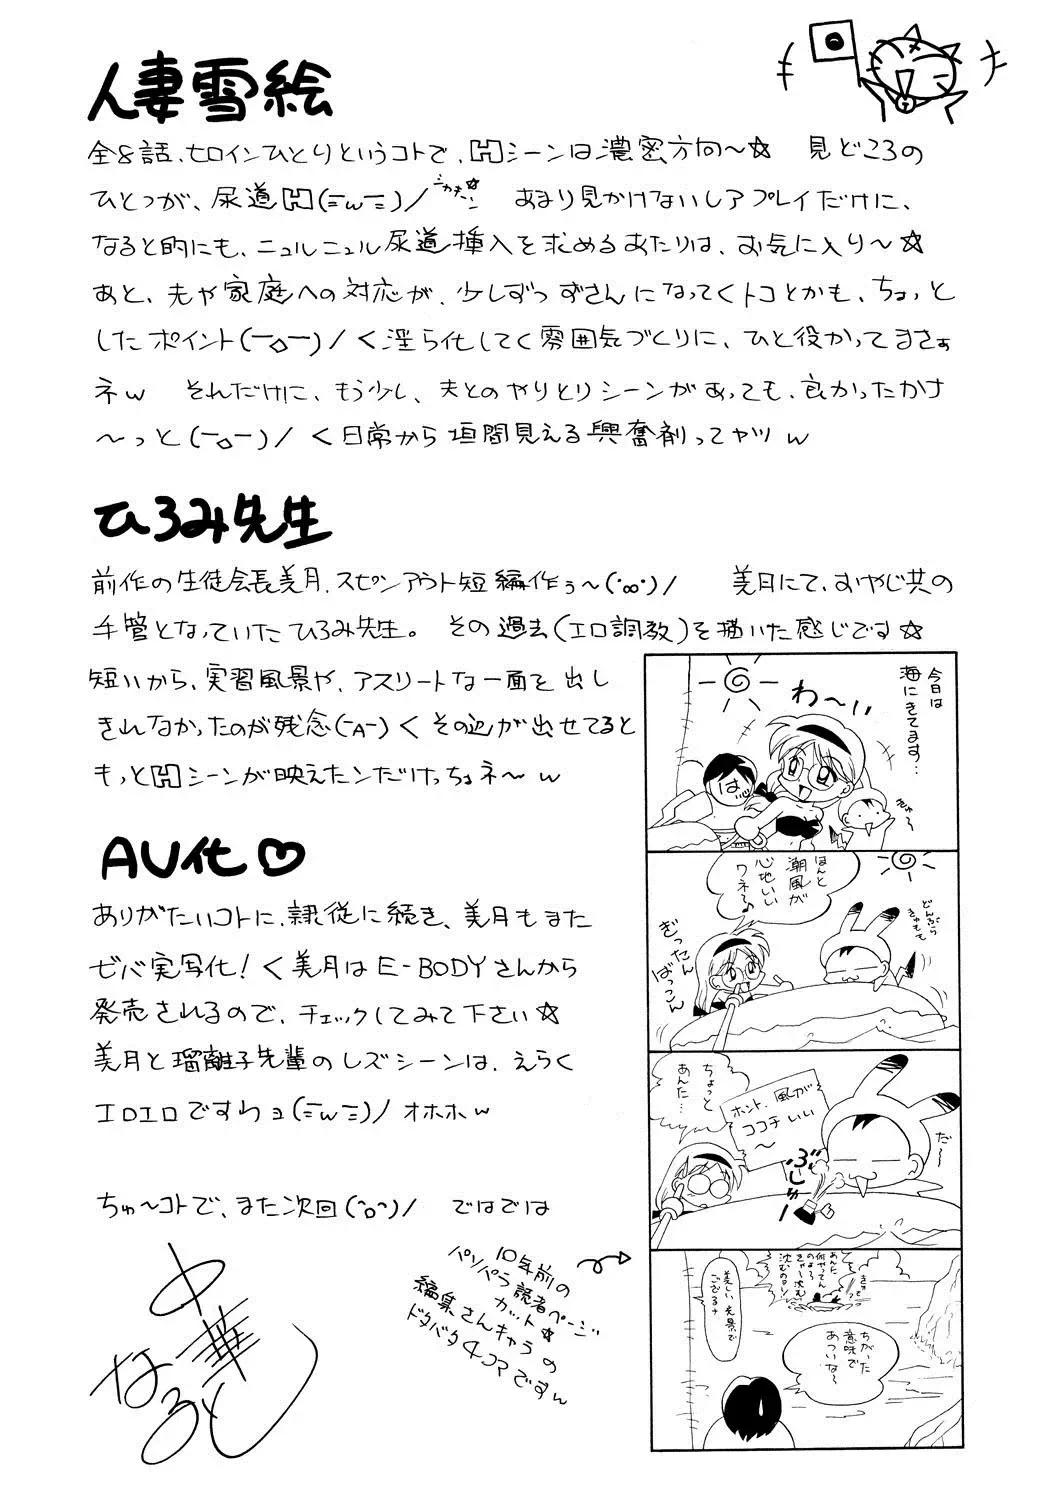 人妻雪絵
全8話、ヒロインひとりというコトで、Hシーンは濃密方向～☆ 見どころの
ひとつが、尿道H(=w=)/ あまり見かけないレアプレイだけに、
なると的にも、ニュルニュル尿道挿入を求めるあたりは、お気に入り～☆
あと、夫や家庭への対応が、少しずつずさんになってくトコとかも、ちょっと
したポイント(￣◇￣)/ く淫ら化してく雰囲気づくりに、ひと役かってまさぁ
ネw それだけに、もう少し、夫とのやりとりシーンがあっても、良かったかナ
～っと(￣◇￣)/ く日常から垣間見える興奮剤ってヤツw
ひろみ先生
前作の生徒会長美月、スピンアウト短編作ぅ～(・∞・)/ 美月にて、おやじ共の
手管となっていたひろみ先生。 その過去(エロ調教)を描いた感じです☆
短いから、実習風景や、アスリートな一面を出し
きれなかったのが残念(-A-) く その辺が出せてると
もっとHシーンが映えたンだけっちょネ～w
AV化♡
ありがたいコトに、隷従に続き、美月もまた
ゼバ実写化! く美月はE-BODYさんから
発売されるので、チェックしてみて下さい☆
美月と瑠璃子先輩のレズシーンは、えらく
エロエロですわョ(=w=)/ オホホw
ちゅ～コトで、また次回(^o^)/ ではでは
中華
なると
10年前の
パソパラ読者ページ
カット☆
編集さんキャラの
ドタバタ4コマですw
今日は
海にきてます…
わ～い
はい
きゅ～
ほんと
潮風が
心地いい
ワネ～♪
ぎったん
ばっこん
どんぶら
きゅもも
ちょっと
あんた…
ホント、風が
ココチいい
～
だ～
ぶしゅー
美しい光景で
ござるナ
あんた
何やってん
のよ～
きゃー沈む
沈むのョン
ちがった
意味で
あついな～